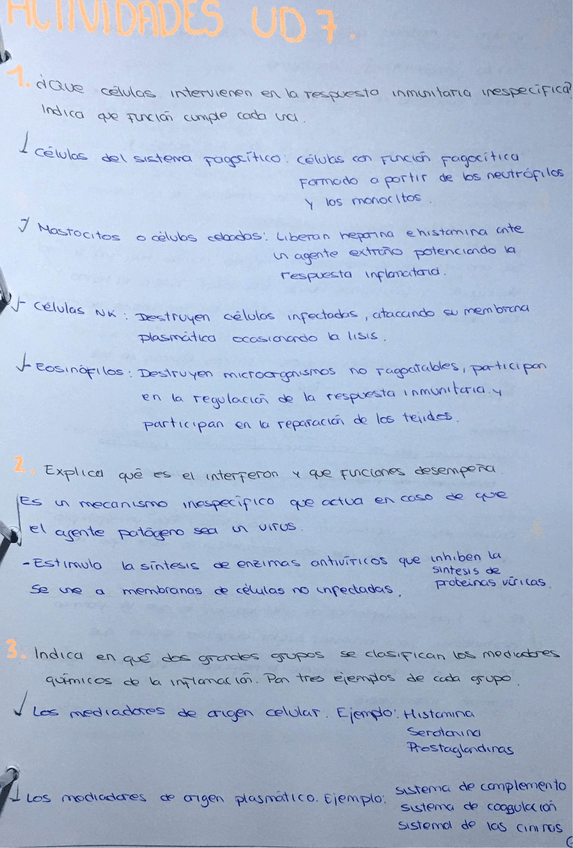 ACTIVIDADES UD7.
1. ¿Que células intervienen en la respuesta inmunitaria inespecífica?
Indica que función cumple cada una.
Células del sistema fagocítico: células con función fagocítica
Formado a partir de los neutrófilos
y los monocitos.
Mastocitos o células cebadas: Liberan heparina e histamina ante
un agente extraño potenciando la
respuesta inflamatoria.
Células NK: Destruyen células infectadas, atacando su membrana
plasmática ocasionando la lisis.
Eosinófilos: Destruyen microorganismos no fagocitables, participan
en la regulación de la respuesta inmunitaria y
participan en la reparación de los tejidos.
2. Explica qué es el interferon y que funciones desempeña.
Es un mecanismo inespecífico que actua en caso de que
el agente patógeno sea un virus.
- Estimula la síntesis de enzimas antivíricos que inhiben la
síntesis de
proteinas víricas.
Se une a membranas de células no infectadas.
3. Indica en qué dos grandes grupos se clasifican los mediadores
químicos de la inflamación. Pon tres ejemplos de cada grupo.
Los mediadores de origen celular. Ejemplo: Histamina
Serotonina
Prostaglandinas
Los mediadores de origen plasmático. Ejemplo: sistema de complemento
sistema de coagulación
sistema de las cininas